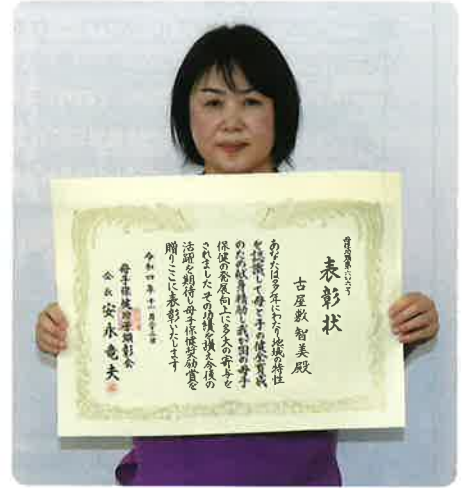 表彰状
古屋敷 智美 殿
あなたは多年にわたり地域の特性
を認識して母と子の健全育成
のため献身精励し我が国の母子
保健の発展向上に多大の寄与を
されました その功績を讃え今後の
活躍を期待し母子保健奨励賞を
贈りここに表彰いたします
令和四年十一月二十二日
会長 安永竜夫